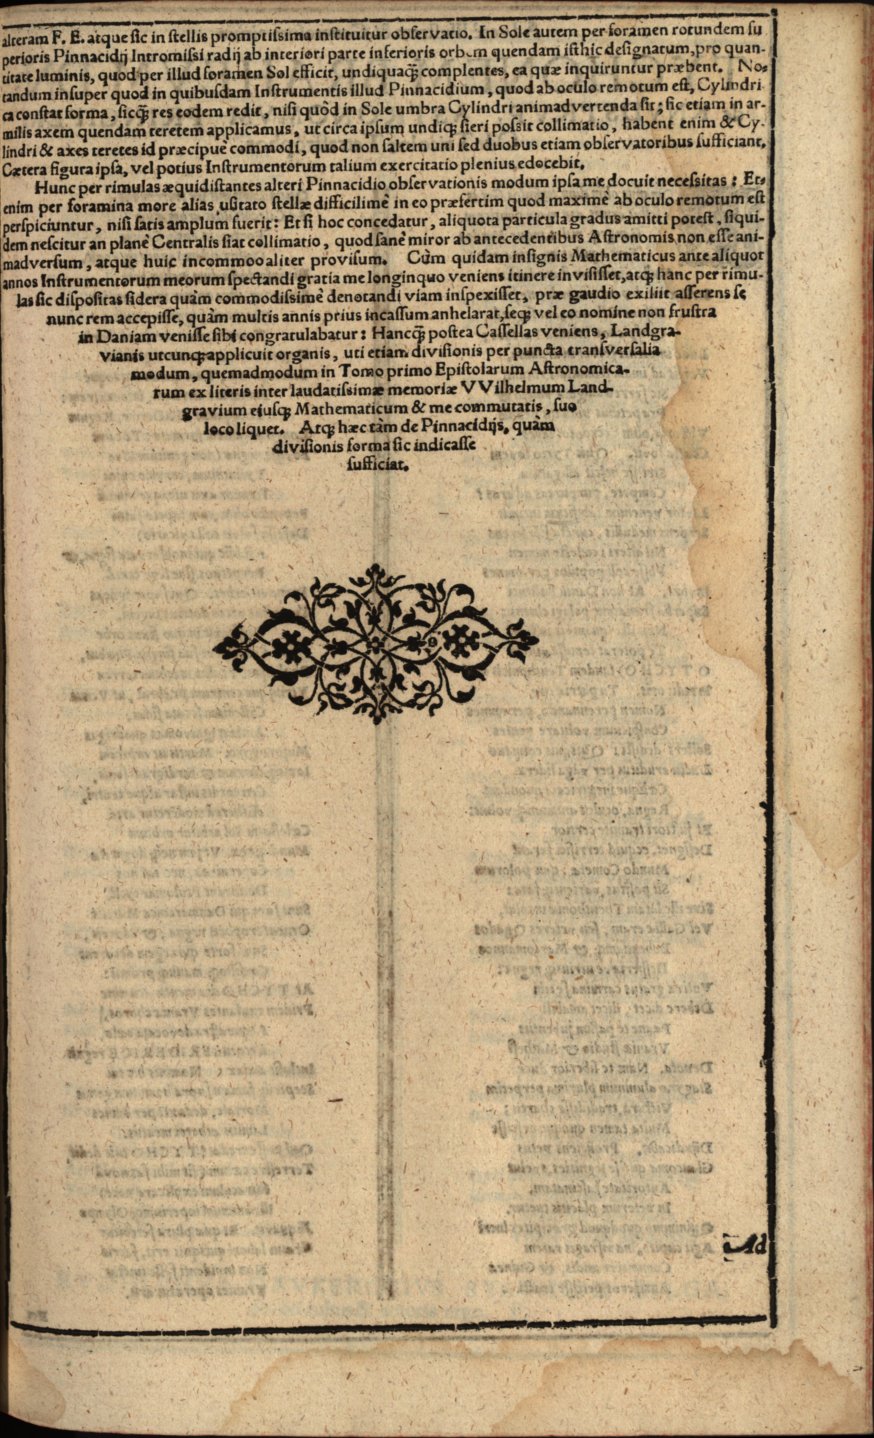 alteram F. E. atque sic in stellis promptissima instituitur observatio. In Sole autem per foramen rotundem su
perioris Pinnacidij Intromissi radij ab interiori parte inferioris orbem quendam isthic designatum, pro quan-
titate luminis, quod per illud foramen Sol efficit, undiquaq́; complentes, ea quæ inquiruntur præbent. No-
tandum insuper quod in quibusdam Instrumentis illud Pinnacidium, quod ab oculo remotum est, Cylindri
ca constat forma, sicq́; res eodem redit, nisi quòd in Sole umbra Cylindri animadvertenda sit; sic etiam in ar-
milis axem quendam teretem applicamus, ut circa ipsum undiq; fieri possit collimatio, habent enim & Cy-
lindri & axes teretes id præcipuè commodi, quod non saltem uni sed duobus etiam observatoribus sufficiant.
Cætera figura ipsa, vel potius Instrumentorum talium exercitatio plenius edocebit.
Hunc per rimulas æquidistantes alteri Pinnacidio observationis modum ipsa me docuit necessitas: Et-
enim per foramina more alias usitato stellæ difficilimè in eo præsertim quod maximè ab oculo remotum est
perspiciuntur, nisi satis amplum fuerit: Et si hoc concedatur, aliquota particula gradus amitti potest, siqui-
dem nescitur an planè Centralis fiat collimatio, quod sanè miror ab antecedentibus Astronomis non esse ani-
madversum, atque huic incommoo aliter provisum. Cùm quidam insignis Mathematicus ante aliquot
annos Instrumentorum meorum spectandi gratia me longinquo veniens itinere invisisset, atq; hanc per rimu-
las sic dispositas sidera quàm commodissimè denotandi viam inspexisset, præ gaudio exiliit asserens se
nunc rem accepisse, quàm multis annis prius incassum anhelarat, seq; vel eo nomine non frustra
in Daniam venisse sibi congratulabatur: Hancq́; postea Cassellas veniens, Landgra-
vianis utcunq; applicuit organis, uti etiam divisionis per puncta transversalia
modum, quemadmodum in Tomo primo Epistolarum Astronomica-
rum ex literis inter laudatissimæ memoriæ VVilhelmum Land-
gravium ejusq; Mathematicum & me commutatis, suo
loco liquet. Atq; hæc tàm de Pinnacidijs, quàm
divisionis forma sic indicasse
sufficiat.
Ad